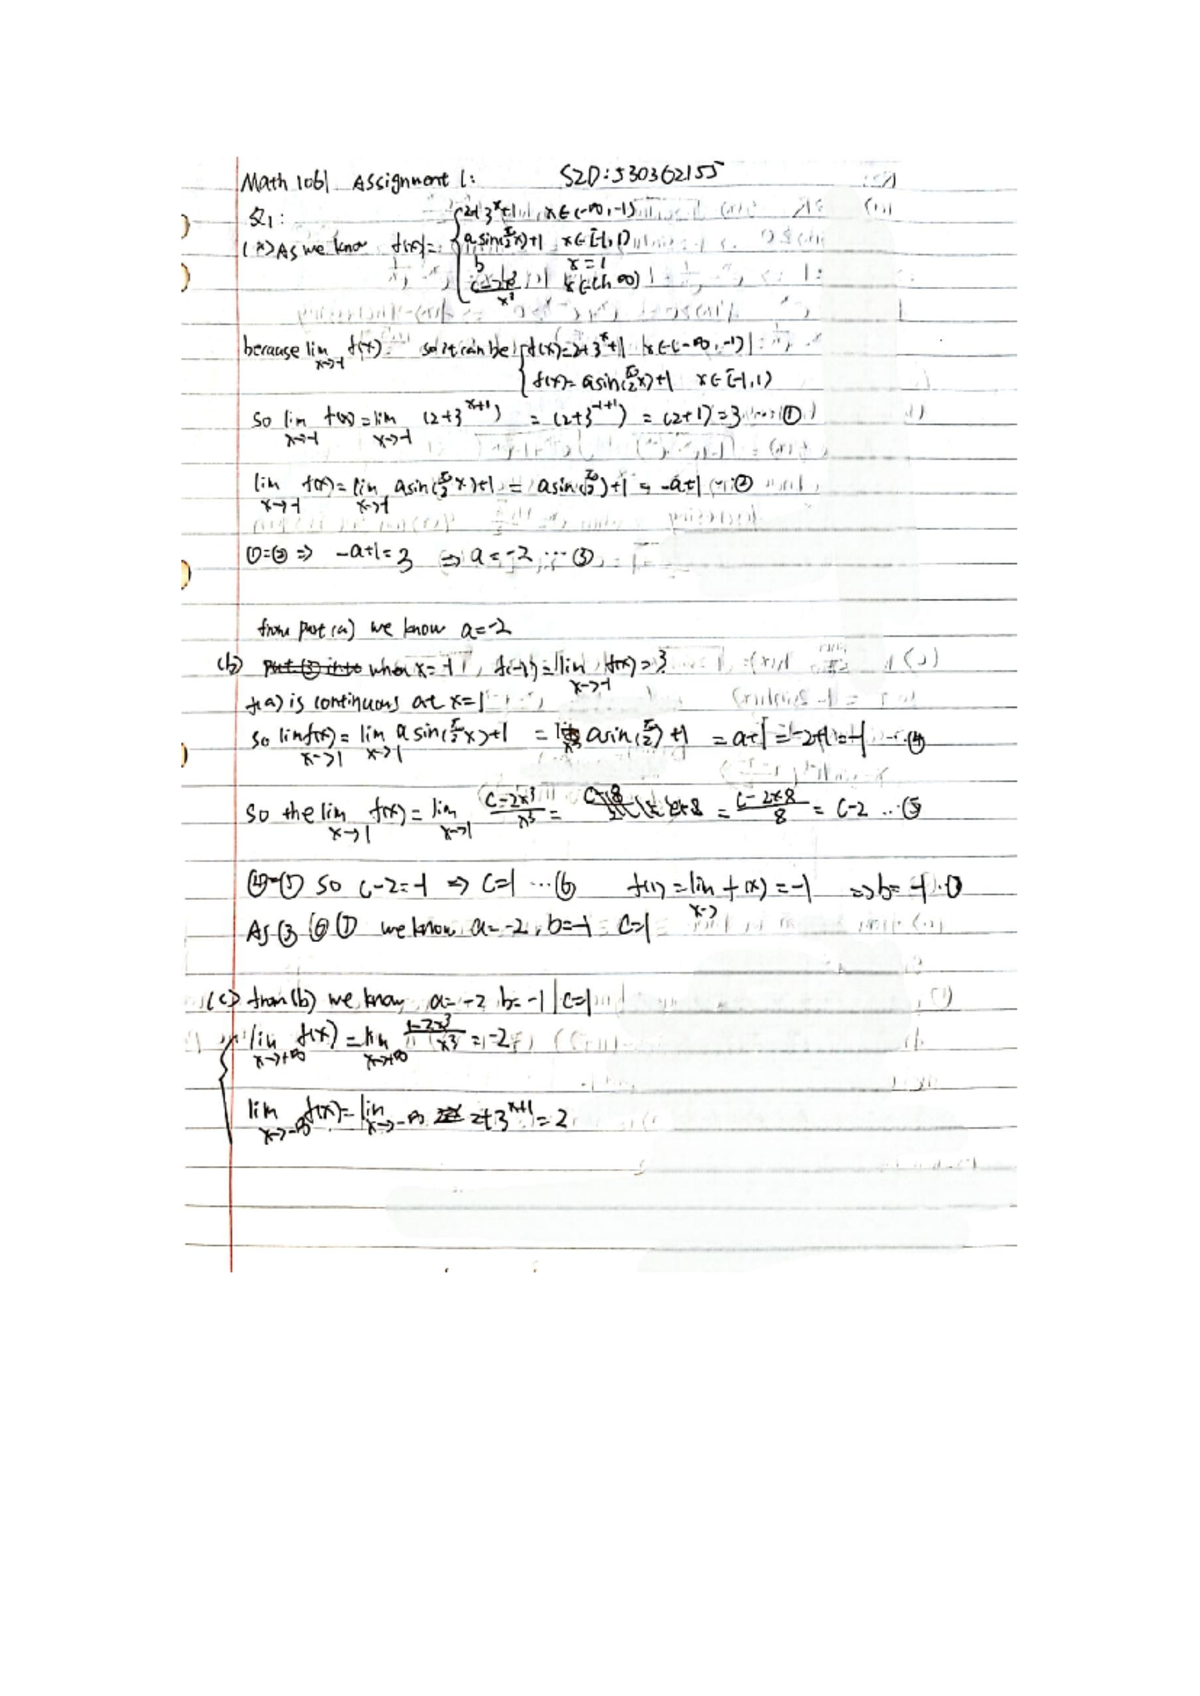 Math 1061 Assignment 1: SID: 530362155
Q1:
(a) As we know f(x) = { 2+3^x+1, x∈(-∞,-1)
a sin(π/2 x)+1 x∈[-1,1)
b x=1
c-2x³/x³ x∈(1,∞)
because lim x→-1 f(x) so it can be { f(x)=2+3^x+1 x∈(-∞,-1)
f(x)= a sin(π/2 x)+1 x∈[-1,1)
so lim x→-1 f(x) = lim x→-1 (2+3^x+1) = (2+3^-1+1) = (2+1) = 3 ... ①
lim x→-1 f(x) = lim x→-1 a sin(π/2 x)+1 = a sin(π/2)+1 = -a+1 ... ②
①=② ⇒ -a+1=3 ⇒ a=-2 ... ③
from part (a) we know a=-2
(b) put ③ into when x=-1, f(-1) = lim x→-1 f(x) = 3
f(a) is continuous at x=1
so lim x→1 f(x) = lim x→1 a sin(π/2 x)+1 = a sin(π/2)+1 = a+1 = -2+1 = -1 ... ④
so the lim x→1 f(x) = lim x→1 c-2x³/x³ = = c-2×8/8 = c-2 ... ⑤
④=⑤ so c-2=-1 ⇒ c=1 ... ⑥ f(1) = lim x→ f(x) = -1 ⇒ b= -1 ... ⑦
As ③ ⑥ ⑦ we know a=-2, b=-1 c=1
(c) from (b) we know a=-2 b=-1 c=1
{ lim x→+∞ f(x) = lim x→+∞ 1-2x³/x³ = -2
lim x→-∞ f(x) = lim x→-∞ 2+3^x+1 = 2